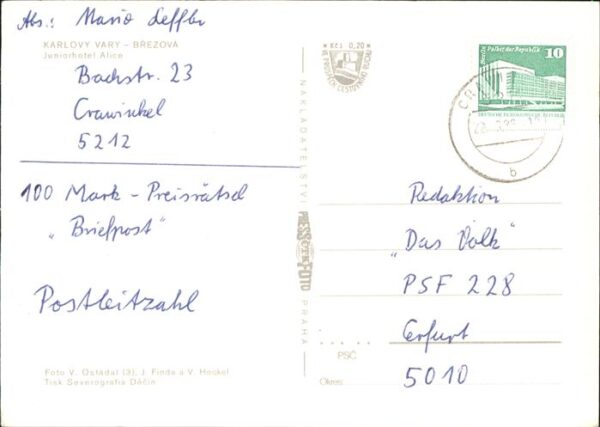 Abs.: Mario Leffler
KARLOVY VARY – BŘEZOVÁ
Juniorhotel Alice
Bachstr. 23
Crawinkel
5212
100 Mark - Preisrätsel
„Briefpost"
Postleitzahl
Foto V. Ostádal (3), J. Finda a V. Heckel
Tisk Severografia Děčín
Kčs 0,20
NAKLADATELSTVÍ
PRESSFOTO
PRAHA
Berlin Palast der Republik
10
DEUTSCHE DEMOKRATISCHE REPUBLIK
b
Redaktion
„Das Volk"
PSF 228
Erfurt
PSČ
5010
Okres